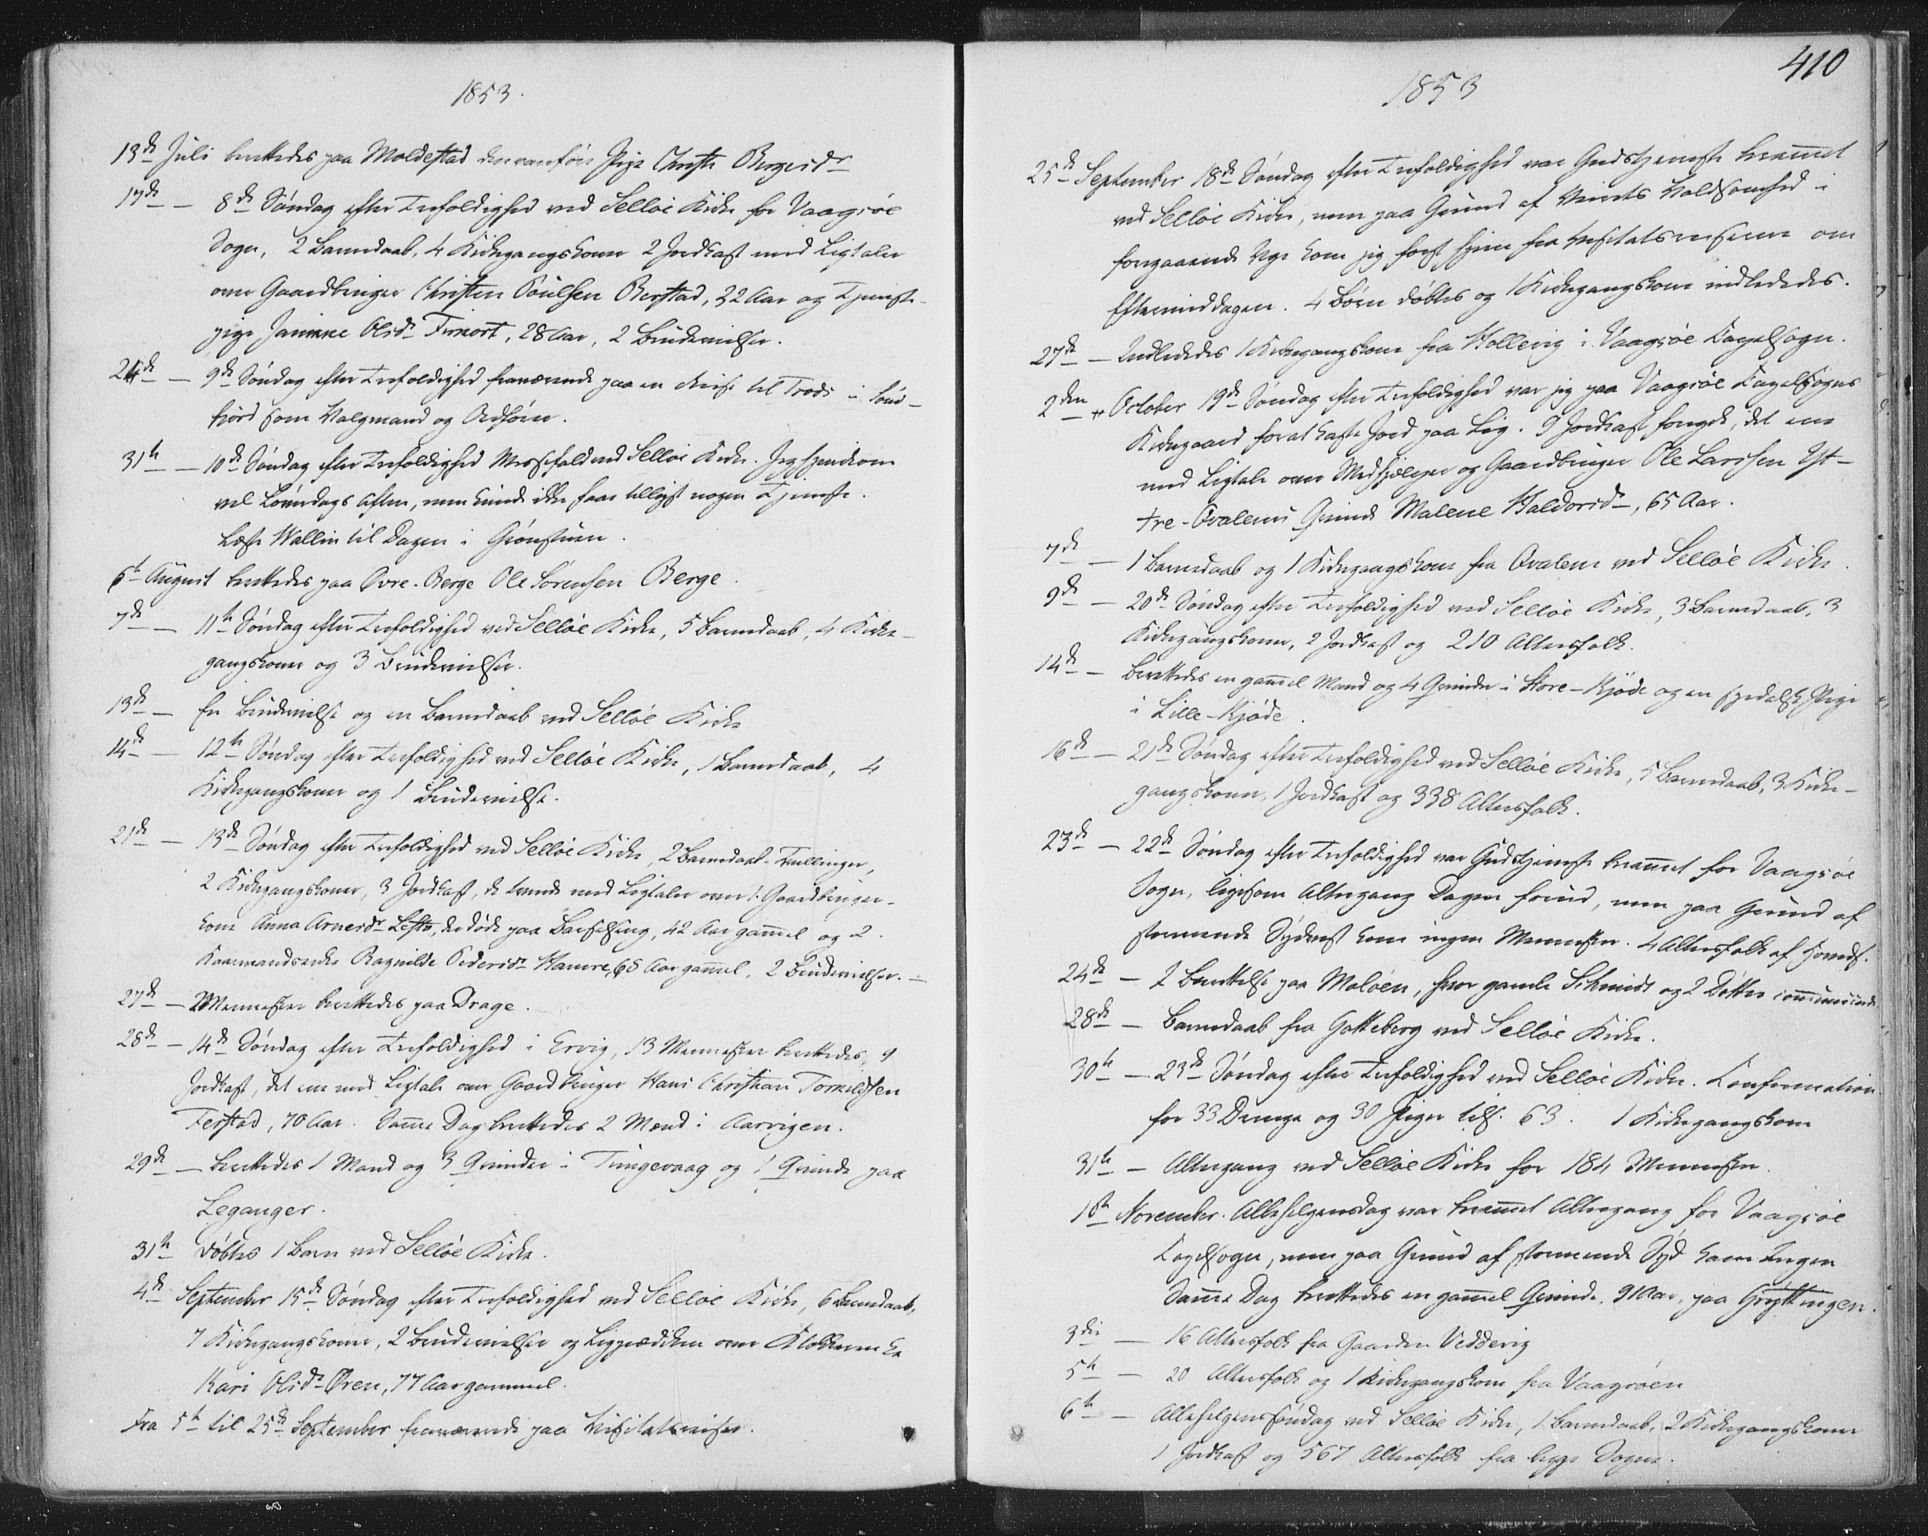 1853.
13de Juli berettedes paa Moldestad den vanføre Pige Christi Bergesdr
17de — 8de Søndag efter Trefoldighed ved Selløe Kirke for Vaagsøe
Sogn, 2 Barnedaab, 4 Kirkegangskoner 2 Jordkast med Ligtaler
over Gaardbruger Christen Poulsen Berstad, 32 Aar og Tjeneste-
pige Janikke Olsdr , 28 Aar, 2 Brudevielser.
24de — 9de Søndag efter Trefoldighed fraværende paa en Reise til i Sønd-
fjord som Valgmand og Ordfører.
31te — 10de Søndag efter Trefoldighed Messefald ved Selløe Kirke. Jeg hjemkom
vel Løverdags Aften, men kunde ikke faae tillyst nogen Tjeneste.
Læste Wallin til Dagen i Grønstuen.
6te August berettedes paa Øvre-Berge Ole Sørensen Berge.
7de — 11te Søndag efter Trefoldighed ved Selløe Kirke, 5 Barnedaab, 4 Kirke-
gangskoner og 3 Brudevielser.
13de — En Brudevielse og en Barnedaab ved Selløe Kirke
14de — 12te Søndag efter Trefoldighed ved Selløe Kirke, 1 Barnedaab, 4
Kirkegangskoner og 1 Brudevielse.
21de — 13de Søndag efter Trefoldighed ved Selløe Kirke, 2 Barnedaab-Tvillinger,
2 Kirkegangskoner, 3 Jordkast, de tvende med Ligtaler over 1. Gaardbruger-
kone Anna Arnesdr Lefto, der døde paa Barselseng, 42 Aar gammel og 2.
Kaarmandsenke Ragnilde Pedersdr Hamre, 68 Aar gammel, 2 Brudevielser. —
27de — 2 Mennesker berettedes paa Drage.
28de — 14de Søndag efter Trefoldighed i Ervig, 13 Mennesker berettedes, 9
Jordkast, det ene med Ligtale over Gaardbruger Hans Christian Tomeldsen
Ferstad, 70 Aar. Samme Dag berettedes 2 Mænd i Aarvigen.
29de — berettedes 1 Mand og 3 Qvinder i Tungevaag og 1 Qvinde paa
Leganger.
31te Døbtes 1 Barn ved Selløe Kirke.
4de September 15de Søndag efter Trefoldighed ved Selløe Kirke, 6 Barnedaab,
7 Kirkegangskoner, 2 Brudevielser og Ligprædiken over
Kari Olsdr Øren, 77 Aar gammel.
Fra 5te til 25de September fraværende paa Visitatsreiser.
410
1853
25de September 18de Søndag efter Trefoldighed var Gudstjeneste berammet
ved Selløe Kirke, men paa Grund af Veirets Voldsomhed i
foregaaende Uge kom jeg først hjem fra Visitatsreiserne om
Eftermiddagen. 4 Børn døbtes og 1 Kirkegangskone indlededes.
27de — Indlededes 1 Kirkegangskone fra Hollevig i Vaagsøe Capelsogn.
2den October 19de Søndag efter Trefoldighed var jeg paa Vaagsøe Capelsogns
Kirkegaard for at kaste Jord paa Lig. 9 Jordkast foregik, det ene
med Ligtale over Medhjelper og Gaardbruger Ole Larssen Yt-
tre-Qvalens Qvinde Malene Haldorsdr, 65 Aar.
7de — 1 Barnedaab og 1 Kirkegangskone fra Qvalen ved Selløe Kirke.
9de — 20de Søndag efter Trefoldighed ved Selløe Kirke, 3 Barnedaab, 3
Kirkegangskoner, 2 Jordkast og 210 Altersfolk.
14de — Berettedes en gammel Mand og 4 Qvinder i Store-Kjøde og en spedalsk Pige
i Lille-Kjøde.
16de — 21de Søndag efter Trefoldighed ved Selløe Kirke, 5 Barnedaab, 3 Kirke-
gangskoner, 1 Jordkast og 338 Altersfolk.
23de — 22de Søndag efter Trefoldighed var Gudstjeneste berammet for Vaagsøe
Sogn, ligesom Altergang Dagen forud, men paa Grund af
stormende Sydvest kom ingen Mennesker. 4 Altersfolk af
24de — 1 Berettelse paa Moløen, hvor gamle Schmidt og 2 Døttre communicerede.
28de — Barnedaab fra Gotteberg ved Selløe Kirke.
30te — 23de Søndag efter Trefoldighed ved Selløe Kirke. Confirmation
for 33 Drenge og 30 Piger tils. 63. 1 Kirkegangskone
31te — Altergang ved Selløe Kirke for 184 Mennesker.
1ste November. Allehelgensdag var berammet Altergang for Vaagsøe
Capelsogn, men paa Grund af stormende Syd kom Ingen
Samme Dag berettedes en gammel Qvinde, 91 Aar, paa Gryttingen.
3die — 16 Altersfolk fra Gaarden Vedvig
5te — 20 Altersfolk og 1 Kirkegangskone fra Vaagsøen
6te — Allehelgenssøndag ved Selløe Kirke, 1 Barnedaab, 2 Kirkegangskoner
1 Jordkast og 567 Altersfolk fra begge Sogne.